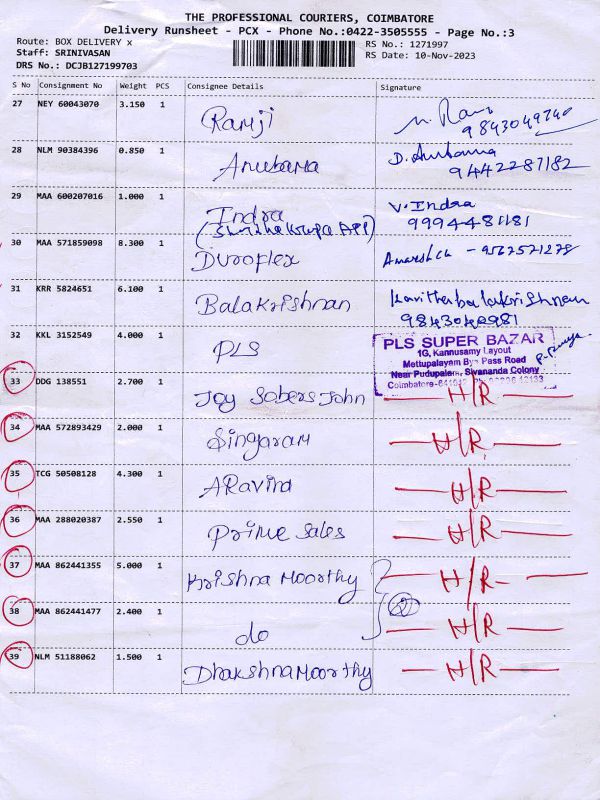 THE PROFESSIONAL COURIERS, COIMBATORE
Delivery Runsheet - PCX - Phone No.:0422-3505555 - Page No.:3
Route: BOX DELIVERY x
RS No.: 1271997
Staff: SRINIVASAN
RS Date: 10-Nov-2023
DRS No.: DCJB127199703
S No Consignment No Weight PCS Consignee Details Signature
27 NEY 60043070 3.150 1 Ramji
28 NLM 90384396 0.850 1 Anubama D. Anubama
9442287182
29 MAA 600207016 1.000 1 Indra V. Indra
9994481181
30 MAA 571859098 8.300 1 Duroflex
31 KRR 5824651 6.100 1 Balakrishnan Kavithabalakrishnan
32 KKL 3152549 4.000 1 PLS
PLS SUPER BAZAR
1G, Kannusamy Layout
Mettupalayam Bye Pass Road
Near Pudupalam, Sivananda Colony
33 DDG 138551 2.700 1 Joy Sobers John H/R
34 MAA 572893429 2.000 1 Singaram H/R
35 TCG 50508128 4.300 1 ARavind H/R
36 MAA 288020387 2.550 1 Prime Sales H/R
37 MAA 862441355 5.000 1 Krishna Moorthy H/R
38 MAA 862441477 2.400 1 do H/R
39 NLM 51188062 1.500 1 DhakshnaMoorthy H/R